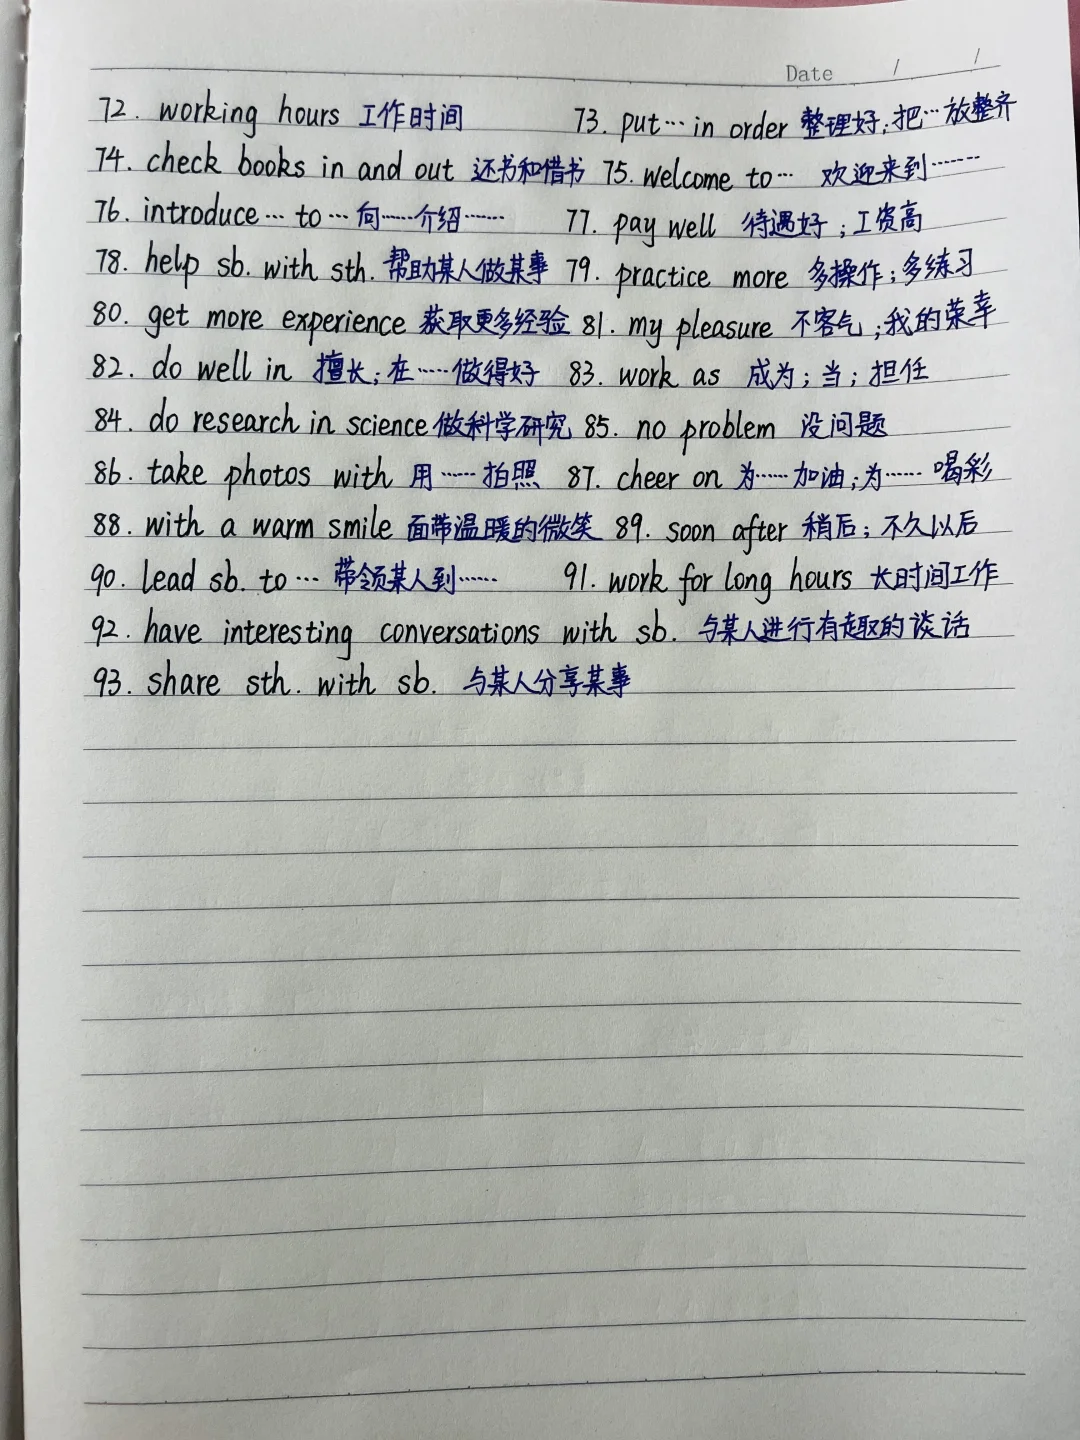 Date / /
72. working hours 工作时间 73. put… in order 整理好;把…放整齐
74. check books in and out 还书和借书 75. welcome to… 欢迎来到……
76. introduce… to… 向……介绍…… 77. pay well 待遇好;工资高
78. help sb. with sth. 帮助某人做某事 79. practice more 多操作;多练习
80. get more experience 获取更多经验 81. my pleasure 不客气;我的荣幸
82. do well in 擅长;在……做得好 83. work as 成为;当;担任
84. do research in science 做科学研究 85. no problem 没问题
86. take photos with 用……拍照 87. cheer on 为……加油;为……喝彩
88. with a warm smile 面带温暖的微笑 89. soon after 稍后;不久以后
90. lead sb. to… 带领某人到…… 91. work for long hours 长时间工作
92. have interesting conversations with sb. 与某人进行有趣的谈话
93. share sth. with sb. 与某人分享某事